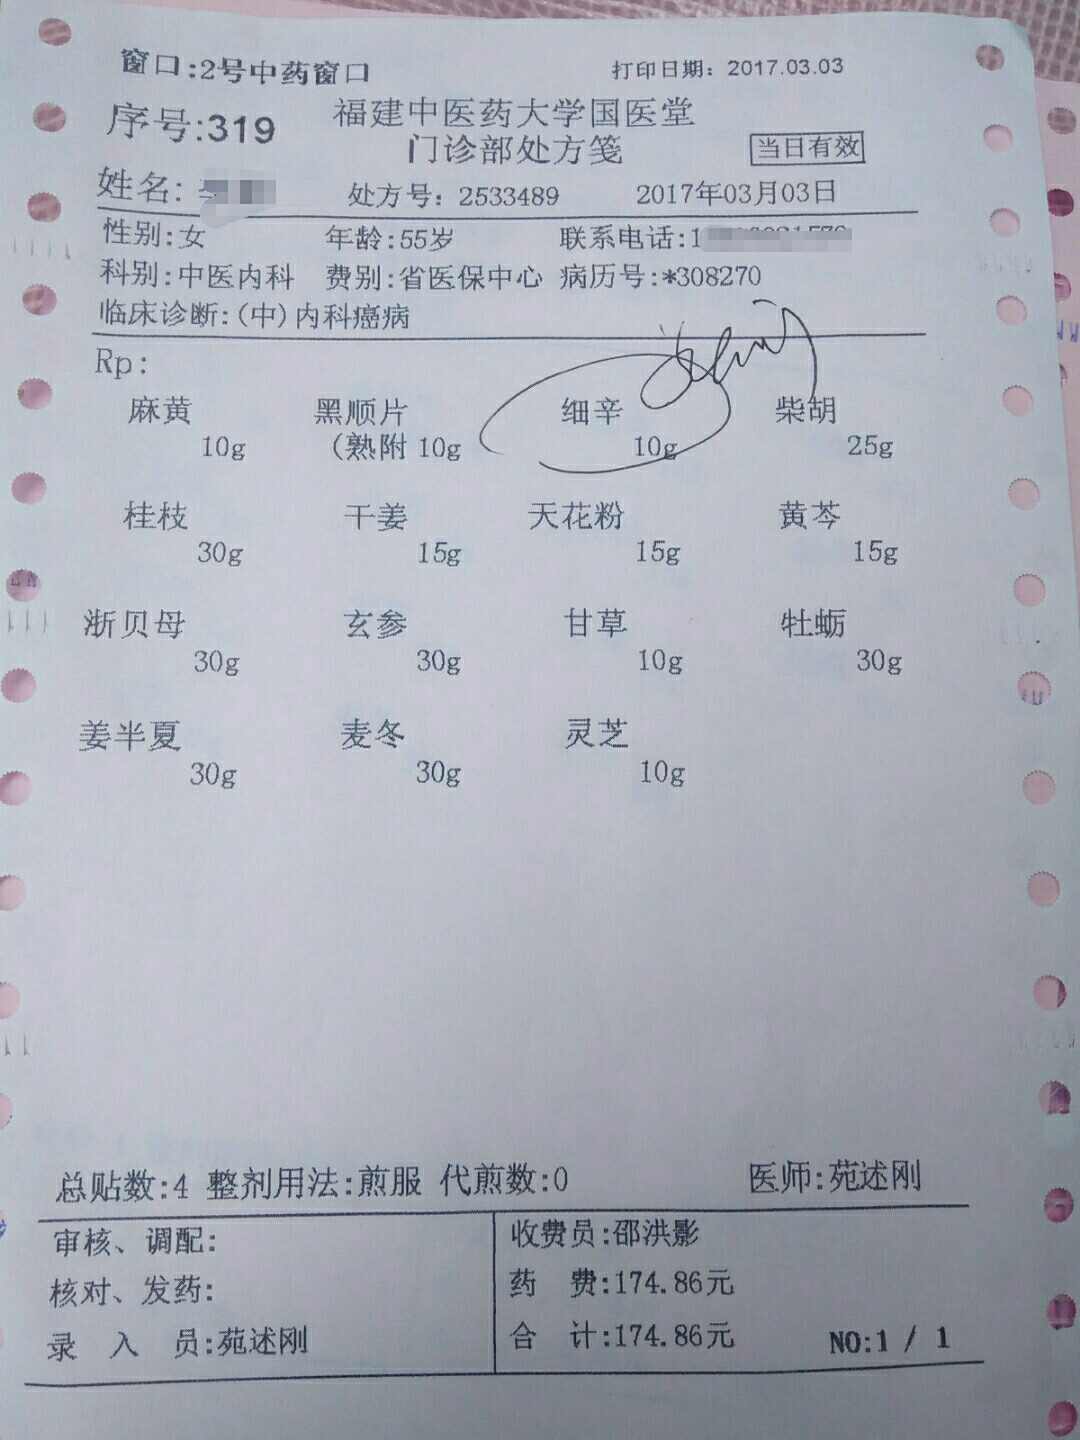 窗口:2号中药窗口
打印日期: 2017.03.03
序号:319
福建中医药大学国医堂
门诊部处方笺
当日有效
姓名:
处方号: 2533489
2017年03月03日
性别:女 年龄:55岁 联系电话:1
科别:中医内科 费别:省医保中心 病历号:*308270
临床诊断:(中)内科癌病
Rp:
麻黄 黑顺片 细辛 柴胡
10g (熟附 10g 10g 25g
桂枝 干姜 天花粉 黄芩
30g 15g 15g 15g
浙贝母 玄参 甘草 牡蛎
30g 30g 10g 30g
姜半夏 麦冬 灵芝
30g 30g 10g
总贴数:4 整剂用法:煎服 代煎数:0 医师:苑述刚
审核、调配: 收费员:邵洪影
核对、发药: 药 费:174.86元
录 入 员:苑述刚 合 计:174.86元 NO:1 / 1